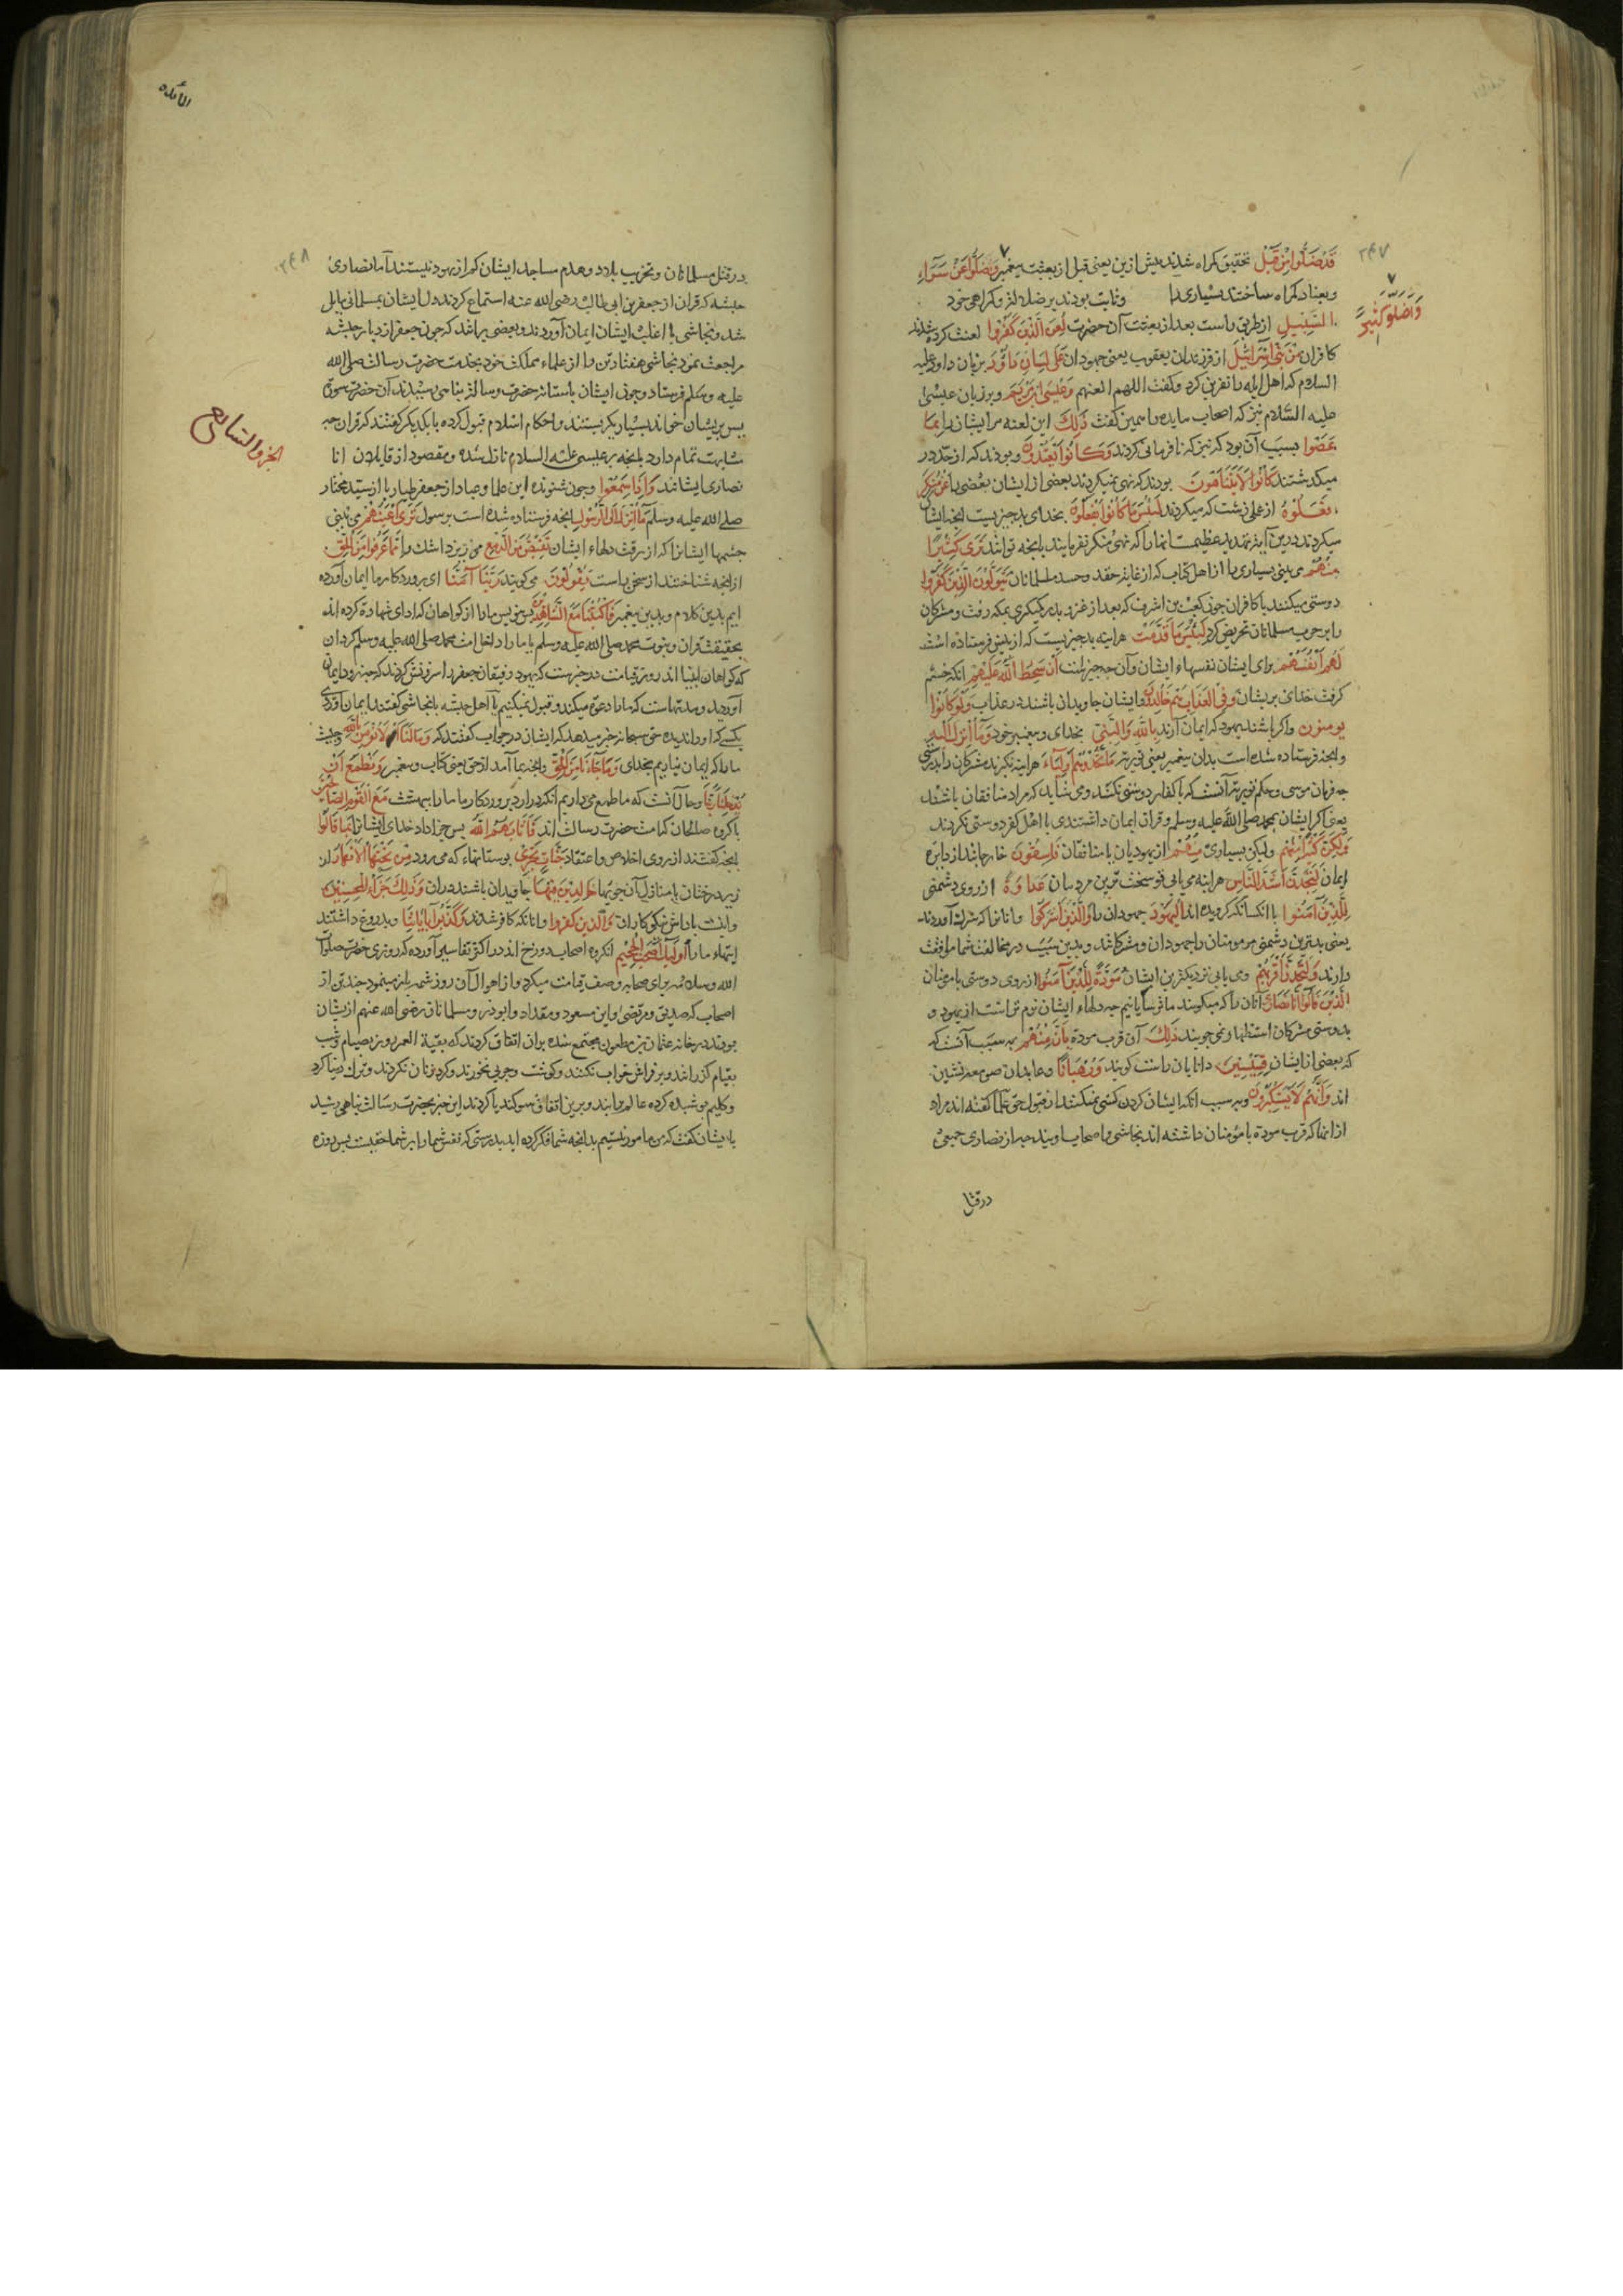 ۲۴۷
قَدْ ضَلُّوا مِنْ قَبْلُ بتحقیق کمراه شدند بیش ازین یعنی قبل از بعثت بیغمبر وَضَلُّوا عَنْ سَوَاءِ
وَاَضَلُّوا كَثِيرًا
وبعناد کمراه ساختند بسیاری را وثابت بودند بر ضلالت وکمراهی خود
السَّبِيلِ از طریق راست بعد از بعثت آن حضرت لُعِنَ الَّذِينَ كَفَرُوا لعنت کرده شدند
کافران مِنْ بَنِي اِسْرَائِيلَ از فرزندان یعقوب یعنی جهودان عَلَى لِسَانِ دَاوُدَ بر زبان داود علیه
السلام که اهل ایله را نفرین کرد وکفت اللهم العنهم وَعِيسَى ابْنِ مَرْيَمَ وبر زبان عیسی
علیه السّلام نیز که اصحاب مایده را همین کفت ذَلِكَ این لعنه مر ایشانرا بِمَا
عَصَوْا بسبب آن بود که نافرمانی کردند وَكَانُوا يَعْتَدُونَ وبودند که از حدّ در
میکذشتند كَانُوا لَا يَتَنَاهَوْنَ بودند که نهی نمیکردند بعضی از ایشان بعضی را عَنْ مُنْكَرٍ
فَعَلُوهُ از عملی زشت که میکردند لَبِئْسَ مَا كَانُوا يَفْعَلُونَ بخدای بد جیزیست انچه ایشان
میکردند درین آیت تهدید عظیمست انها را که نهی منکر نفرمایند با انچه توانند تَرَى كَثِيرًا
مِنْهُمْ می بینی بسیاری را از اهل کتاب که از غایت حقد وحسد مسلمانان يَتَوَلَّوْنَ الَّذِينَ كَفَرُوا
دوستی میکنند با کافران جون کعب بن اشرف که بعد از غزوه بدر بمکه رفت ومشرکان
را بر حرب مسلمانان تحریض کرد لَبِئْسَ مَا قَدَّمَتْ هراینه بد جیزیست که از پیش فرستاده است
لَهُمْ اَنْفُسُهُمْ برای ایشان نفسهاء ایشان وآن چه جیزاست اَنْ سَخِطَ اللّٰهُ عَلَيْهِمْ انکه خشم
کرفت خدای بریشان وَفِي الْعَذَابِ هُمْ خَالِدُونَ وایشان جاویدان باشند در عذاب وَلَوْ كَانُوا
يُؤْمِنُونَ واکر باشند یهود که ایمان آرند بِاللّٰهِ وَالنَّبِيِّ بخدای وبیغمبر خود وَمَا اُنْزِلَ اِلَيْهِ
وانچه فرستاده شده است بدان بیغمبر یعنی توریة مَا اتَّخَذُوهُمْ اَوْلِيَاءَ هراینه نکیرند مشرکان را بدوستی
چه فرمان موسی وحکم توریة آنست که با کفار دوستی نکنند ومی شاید که مراد منافقان باشند
یعنی اکر ایشان بمحمد صلی الله علیه وسلم وقران ایمان داشتندی با اهل کفر دوستی نکردند
وَلَكِنَّ كَثِيرًا مِنْهُمْ ولیکن بسیاری مِنْهُمْ از یهودیان یا منافقان فَاسِقُونَ خارجانند از دایره
ایمان لَتَجِدَنَّ اَشَدَّ النَّاسِ هراینه می یابی تو سخت ترین مردمان عَدَاوَةً از روی دشمنی
لِلَّذِينَ آمَنُوا با انکسانکه کرویده اند الْيَهُودَ جهودان را وَالَّذِينَ اَشْرَكُوا وانانرا که شرک آوردند
یعنی بدترین دشمنی مر مومنان را جهودان ومشرکانند وبدین سبب در مخالفت شما موافقت
دارند وَلَتَجِدَنَّ اَقْرَبَهُمْ ومی یابی نزدیکترین ایشان مَوَدَّةً لِلَّذِينَ آمَنُوا از روی دوستی با مومنان
الَّذِينَ قَالُوا اِنَّا نَصَارَى آنان را که میکویند ما ترسایانیم چه دلهاء ایشان نرم تر است از یهود و
بدوستی مشرکان استظهار نمی جویند ذَلِكَ آن قرب مودة بِاَنَّ مِنْهُمْ به سبب آنست که
که بعضی از ایشان قِسِّيسِينَ دانایان راست کویند وَرُهْبَانًا وعابدان صومعه نشین
اند وَاَنَّهُمْ لَا يَسْتَكْبِرُونَ وبه سبب انکه ایشان کردن کشی نمیکنند از قبول حق علما کفته اند مراد
از انها که قرب مودة با مؤمنان داشته اند نجاشی واصحاب اویند چه از نصاری جمعی
درقتل
المائده
۲۴۸
در قتل مسلمانان وتخریب بلاد وهدم مساجد ایشان کم از یهود نیستند اما نصاری
حبشه که قران از جعفر بن ابی طالب رضی الله عنه استماع کردند دل ایشان بمسلمانی مایل
شد ونجاشی با اغلب ایشان ایمان آوردند وبعضی برانند که جون جعفر از دیار حبشه
مراجعت نمود نجاشی هفتاد تن را از علماء مملکت خود بخدمت حضرت رسالت صلی الله
علیه وسلم فرستاد وجون ایشان باستانه حضرت رسالت بناهی رسیدند آن حضرت سوره
یس بریشان خواند بسیار بکریستند واحکام اسلام قبول کرده با یکدیکر کفتند که قران چه
مشابهت تمام دارد با انچه بر عیسی علیه السلام نازل شده ومقصود از قایلان انا
الجزو السابع
نصاری ایشانند وَاِذَا سَمِعُوا وجون شنودند این علما وعباد از جعفر طیار یا از سید مختار
صلی الله علیه وسلم مَا اُنْزِلَ اِلَى الرَّسُولِ انچه فرستاده شده است بر رسول تَرَى اَعْيُنَهُمْ می بینی
جشمها ایشانرا که از رقت دلهاء ایشان تَفِيضُ مِنَ الدَّمْعِ می ریزد اشک را مِمَّا عَرَفُوا مِنَ الْحَقِّ
از انچه شناختند از سخن راست يَقُولُونَ می کویند رَبَّنَا آمَنَّا ای بروردکار ما ایمان آورده
ایم بدین کلام وبدین بیغمبر فَاكْتُبْنَا مَعَ الشَّاهِدِينَ بس بنویس ما را از کواهان که ادای شهادة کرده اند
بحقیقت قران ونبوت محمد صلی الله علیه وسلم یا ما را داخل امت محمد صلی الله علیه وسلم کردان
که کواهان انبیا اند روز قیامت در خبرست که یهود رفیقان جعفر را سرزنش کردند که چه زود ایمان
آوردید ومدتهاست که ما را دعوة میکند وقبول نمیکنیم یا اهل حبشه با نجاشی کفتند ایمان آوردی
بکسی که او را ندیده حق سبحانه خبر میدهد که ایشان در جواب کفتند که وَمَا لَنَا لَا نُؤْمِنُ بِاللّٰهِ وچیست
ما را که ایمان نیاریم بخدای وَمَا جَاءَنَا مِنَ الْحَقِّ وانچه بما آمد از حق یعنی کتاب وبیغمبر وَنَطْمَعُ اَنْ
يُدْخِلَنَا رَبُّنَا وحال آنست که ما طمع می داریم انکه درارد بروردکار ما ما را ببهشت مَعَ الْقَوْمِ الصَّالِحِينَ
با کروه صالحان که امت حضرت رسالت اند فَاَثَابَهُمُ اللّٰهُ بس جزا داد خدای ایشانرا بِمَا قَالُوا
بانچه کفتند از روی اخلاص واعتقاد جَنَّاتٍ تَجْرِي بوستانهاء که می رود مِنْ تَحْتِهَا الْاَنْهَارُ از
زیر درختان یا منازل آن جویها خَالِدِينَ فِيهَا جاویدان باشند دران وَذَلِكَ جَزَاءُ الْمُحْسِنِينَ
واینست باداش نیکوکاران وَالَّذِينَ كَفَرُوا وانانکه کافر شدند وَكَذَّبُوا بِآيَاتِنَا وبدروغ داشتند
ایتهاء ما را اُولَئِكَ اَصْحَابُ الْجَحِيمِ انکروه اصحاب دوزخ اند در اکثر تفاسیر آورده که روزی حضرت صلوات
الله وسلامه برای صحابه وصف قیامت میکرد واز اهوال آن روز شمه باز مینمود چند تن از
اصحاب که صدیق ومرتضی وابن مسعود ومقداد وابوذر وسلمان رضی الله عنهم ازیشان
بودند در خانه عثمان بن مظعون مجتمع شده بران اتفاق کردند که بقیة العمر روز بصیام وشب
بقیام کزرانند وبر فراش خواب نکنند وکوشت وچربی نخورند وکرد زنان نکردند وترک دنیا کرده
وکلیم بوشیده کرد عالم برایند وبرین اتفاق سوکند یاد کردند این خبر بحضرت رسالت بناهی رسید
با ایشان کفت که من مامور نیستم بدانچه شما فکر کرده اید بدرستی که نفس شما را بر شما حقیست بس روزه